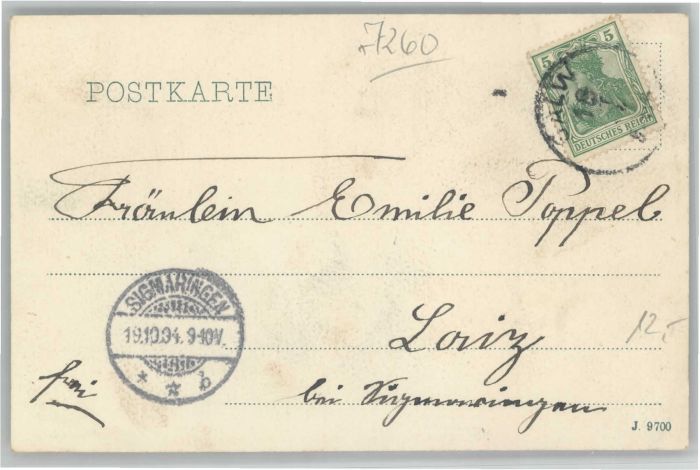 7260
POSTKARTE
5 5
DEUTSCHES REICH
CALW
Fräulein Emilie Poppel
SIGMARINGEN
19.10.04. 9-10V.
* * b
Laiz
12,-
frei
bei Sigmaringen
J. 9700